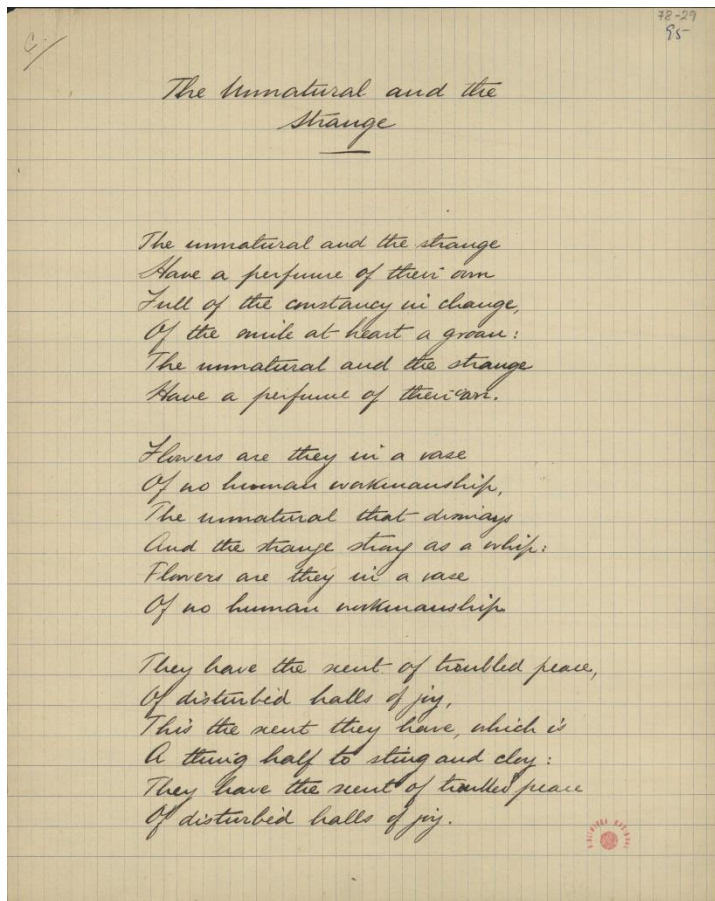 78-29
95
The Unnatural and the
Strange
The unnatural and the strange
Have a perfume of their own
Full of the constancy in change,
Of the smile at heart a groan:
The unnatural and the strange
Have a perfume of their own.
Flowers are they in a vase
Of no human workmanship,
The unnatural that dismays
And the strange strong as a whip:
Flowers are they in a vase
Of no human workmanship
They have the scent of troubled peace,
Of disturbed halls of joy,
This the scent they have, which is
A thing half to sting and cloy:
They have the scent of troubled peace
Of disturbed halls of joy.